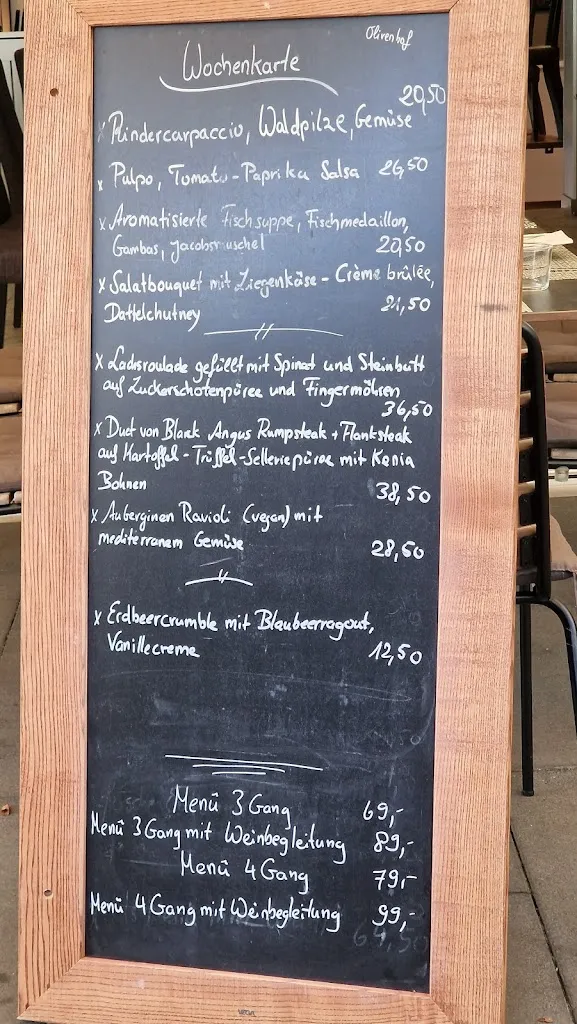 Olivenhof
Wochenkarte
20,50
x Rindercarpaccio, Waldpilze, Gemüse
x Pulpo, Tomato-Paprika Salsa 26,50
x Aromatisierte Fischsuppe, Fischmedaillon,
Gambas, Jacobsmuschel 20,50
x Salatbouquet mit Ziegenkäse - Crème brûlée,
Dattelchutney 21,50
x Lachsroulade gefüllt mit Spinat und Steinbutt
auf Zuckerschotenpüree und Fingermöhren
36,50
x Duet von Black Angus Rumpsteak + Flanksteak
auf Kartoffel - Trüffel - Selleriepüree mit Kenia
Bohnen 38,50
x Auberginen Ravioli (vegan) mit
mediterranem Gemüse 28,50
x Erdbeercrumble mit Blaubeerragout,
Vanillecreme 12,50
Menü 3 Gang 69,-
Menü 3 Gang mit Weinbegleitung 89,-
Menü 4 Gang 79,-
Menü 4 Gang mit Weinbegleitung 99,-